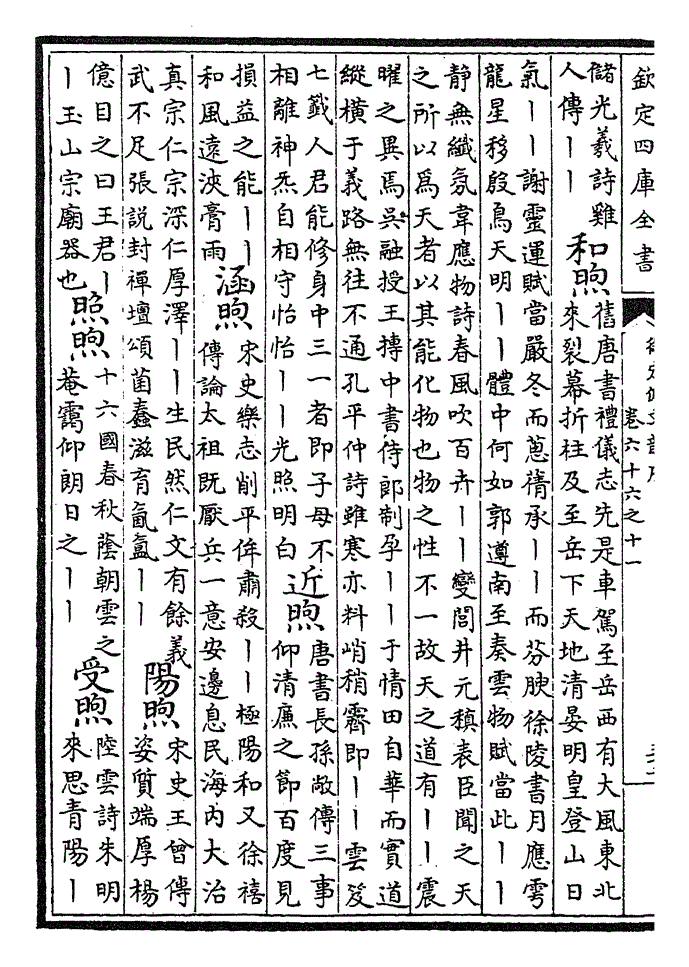 欽定四庫全書
卷六十六之十一
儲光羲詩雞
人傳丨丨
和煦
舊唐書禮儀志先是車駕至岳西有大風東北
來裂幕折柱及至岳下天地清晏明皇登山日
氣丨丨謝靈運賦當嚴冬而蔥蒨承丨丨而芬腴徐陵書月應雩
龍星移殷鳥天明丨丨體中何如郭遵南至奏雲物賦當此丨丨
靜無纖氛韋應物詩春風吹百卉丨丨變閭井元稹表臣聞之天
之所以爲天者以其能化物也物之性不一故天之道有丨丨震
曜之異焉吳融授王摶中書侍郎制孕丨丨于情田自華而實道
縱橫于義路無往不通孔平仲詩雖寒亦料峭稍霽即丨丨雲笈
七籤人君能修身中三一者即子母不
相離神炁自相守怡怡丨丨光照明白
近煦
唐書長孫敞傳三事
仰清廉之節百度見
損益之能丨丨
和風遠浹膏雨
涵煦
宋史樂志削平侔肅殺丨丨極陽和又徐禧
傳論太祖既厭兵一意安邊息民海內大治
真宗仁宗深仁厚澤丨丨生民然仁文有餘義
武不足張説封禪壇頌菌蠢滋育氤氳丨丨
陽煦
宋史王曾傳
姿質端厚楊
億目之曰王君丨
丨玉山宗廟器也
照煦
十六國春秋蔭朝雲之
菴靄仰朗日之丨丨
受煦
陸雲詩朱明
來思青陽丨